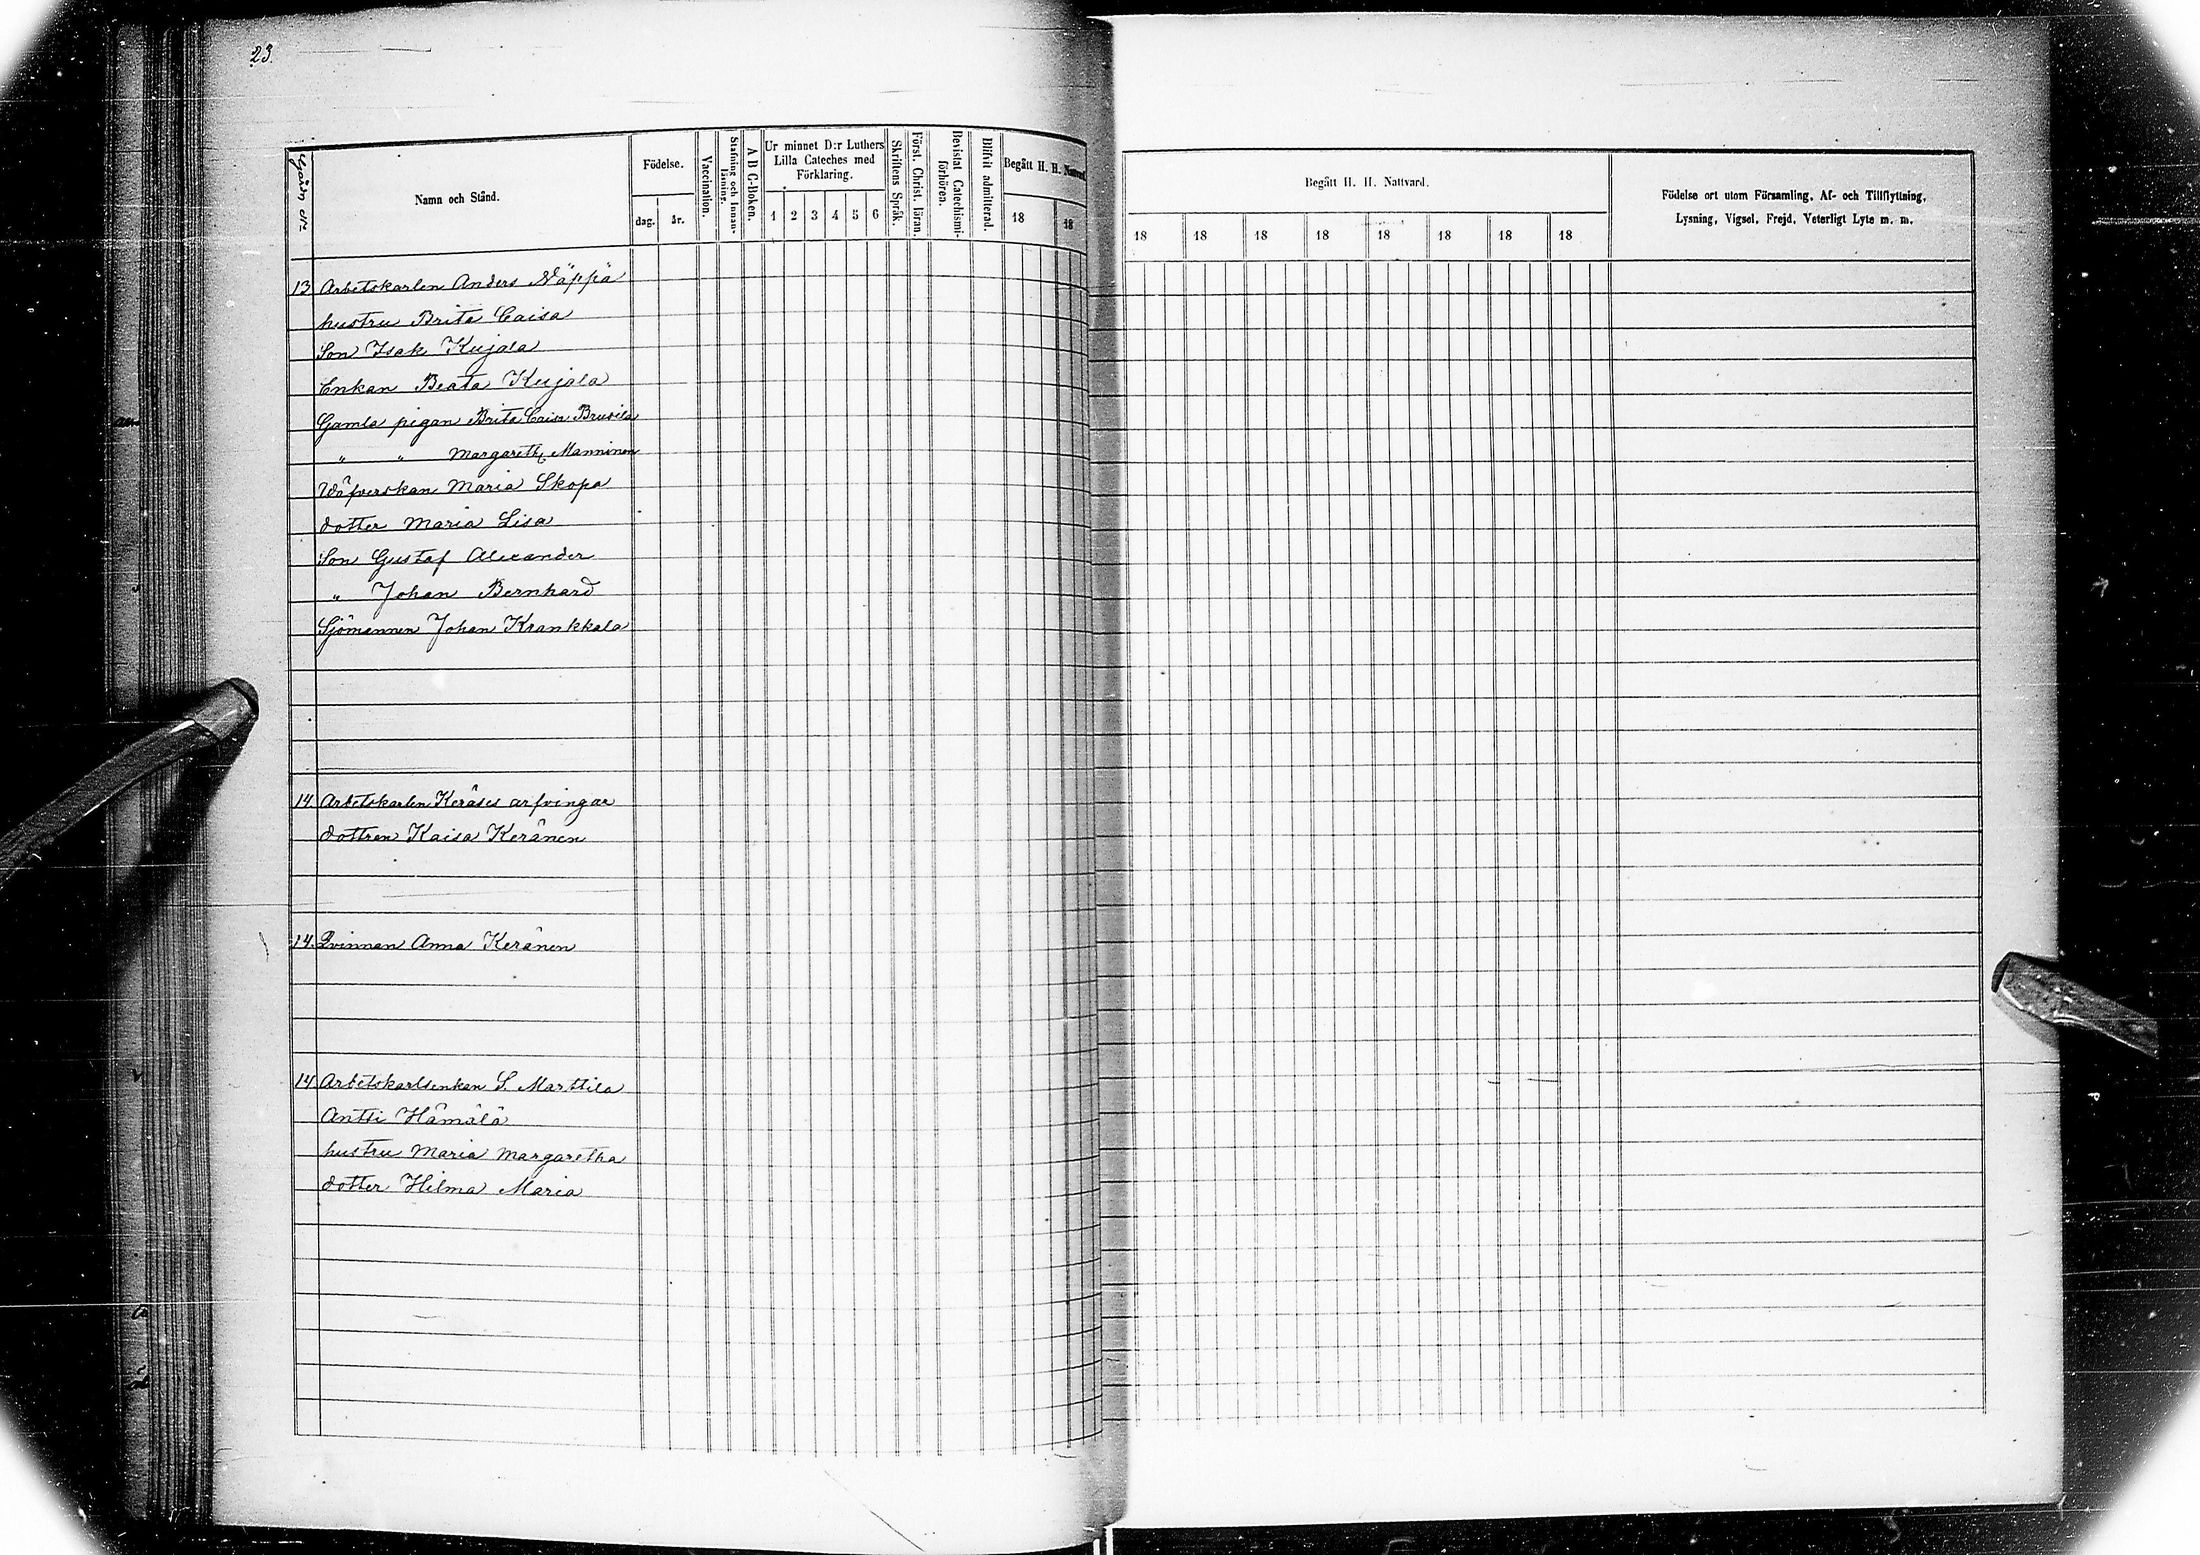 23.
Gård No
Namn och Stånd.
Födelse.
dag.
år.
Vaccination.
Stafning och Innan-
läsning.
A B C-Boken.
Ur minnet D:r Luthers
Lilla Cateches med
Förklaring.
1 2 3 4 5 6
Skriftens Språk.
Först. Christ. läran.
Bevistat Catechismi-
förhören.
Blifvit admitterad.
Begått H. H. Nattvard.
18 18
Begått H. H. Nattvard.
18 18 18 18 18 18 18 18
Födelse ort utom Församling, Af- och Tillflyttning,
Lysning, Vigsel, Frejd, Veterligt Lyte m. m.
13 Arbetskarlen Anders Näppä
hustru Brita Caisa
Son Isak Kujala
Enkan Beata Kujala
Gamla pigan Brita Caisa Brusila
" " Margareth Manninen
Wäfverskan Maria Skopa
dotter Maria Lisa
Son Gustaf Alexander
" Johan Bernhard
Sjömannen Johan Krankkala
14 Arbetskarlen Keräses arfvingar
dottren Kaisa Keränen
14. Qvinnan Anna Keränen
14 Arbetskarlsenkan S. Marttila
Antti Hämälä
hustru Maria Margaretha
dotter Hilma Maria